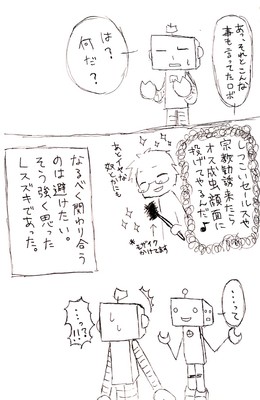 あ、それとこんな
事も言ってたロボ
は？
何だ？
しつこいセールスや
宗教勧誘来たら
オス成虫顔面に
投げてやるんだ♪
あとイヤな
奴にも
※モザイク
かけてます
なるべく関わり合う
のは避けたい。
そう強く思った
Lスズキであった。
…って
…っ!!??